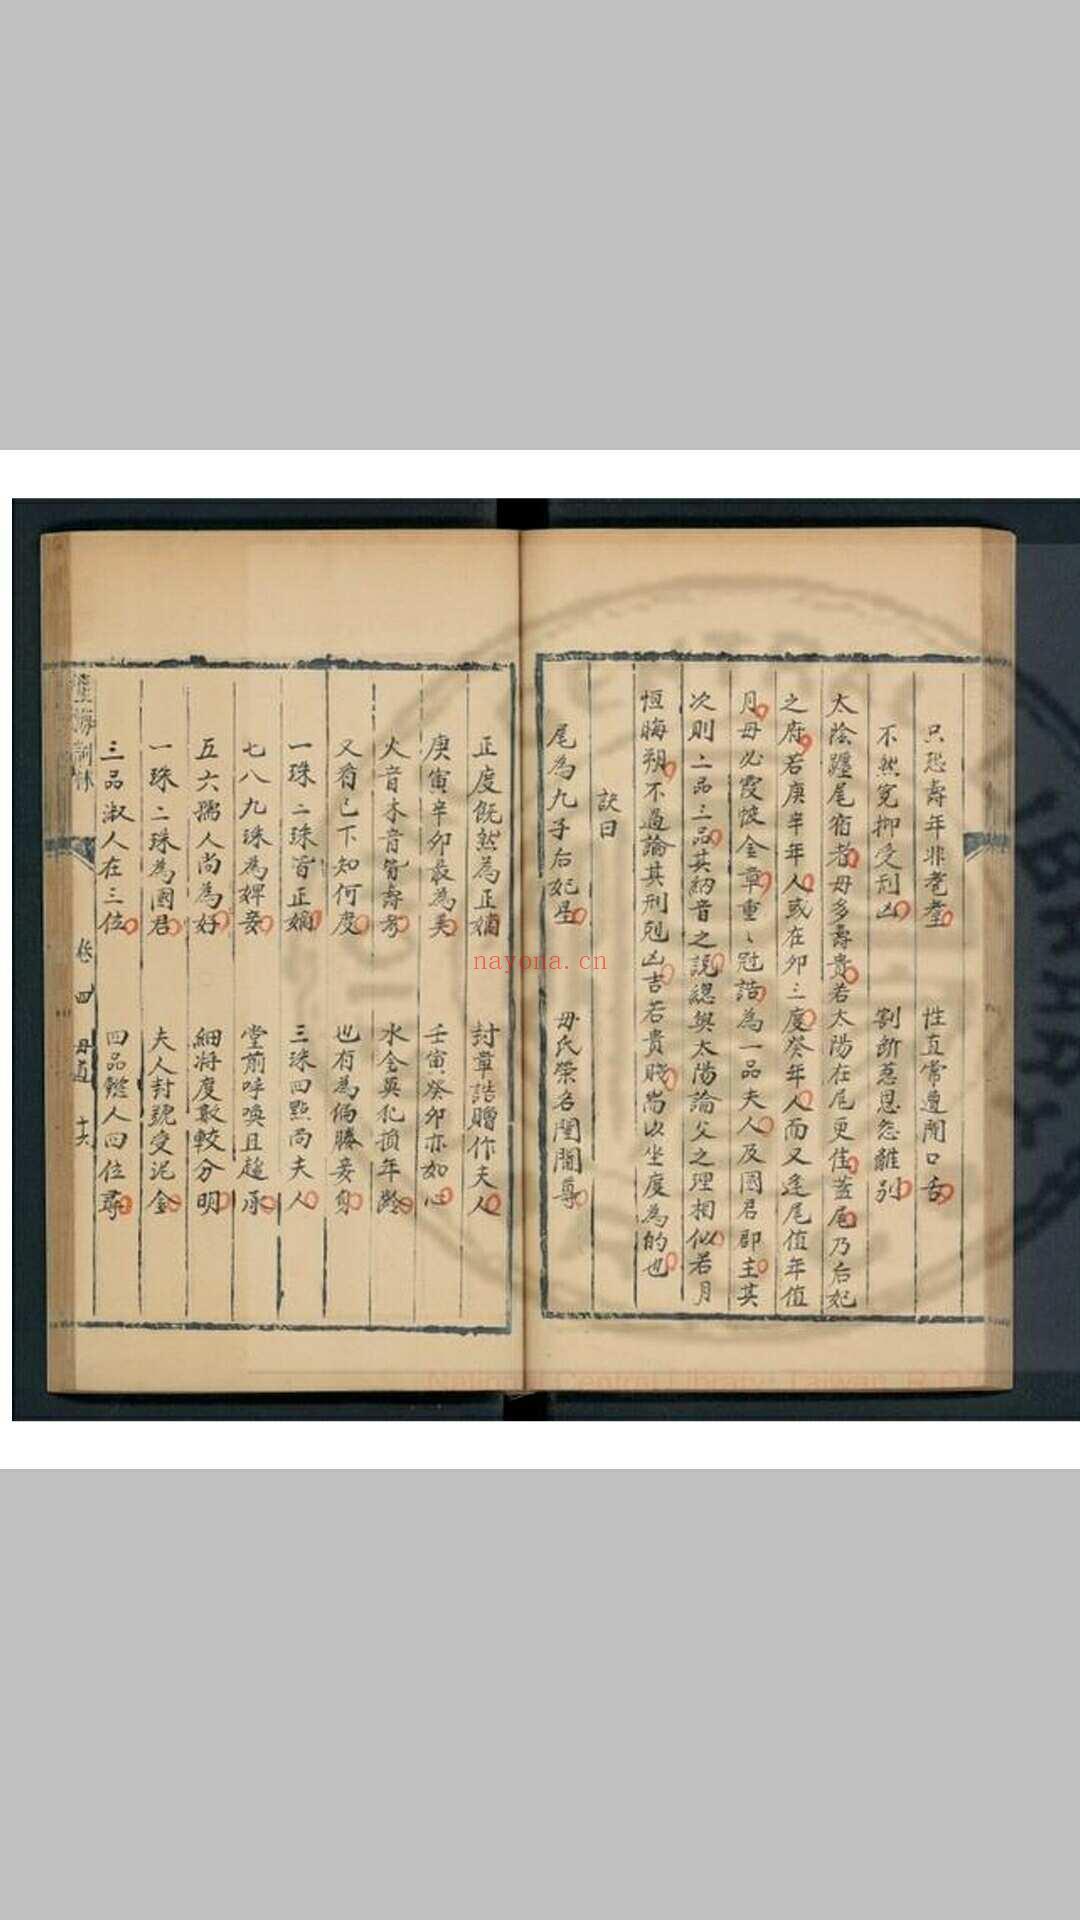 只恐壽年非耄耋 性直常遭鬧口舌
不然寃抑受刑凶 割斷慈恩怨離別
太陰躔尾宿者母多壽貴若太陽在尾更佳蓋尾乃后妃
之府若庚辛年人或在卯三度癸年人而又逢尾值年值
月母必霞帔金章重〻冠誥為一品夫人及國君郡主其
次則二品三品其納音之說總與太陽論父之理相似若月
恒晦朔不過論其刑剋凶吉若貴賤尚以坐度為的也
訣曰
尾為九子后妃星 母氏榮名閨閫尊
正度既然為正嫡 封章誥贈作夫人
庚寅辛卯最為美 壬寅癸卯亦如心
火音木音皆壽考 水金與化損年齡
又看已下知何度 也有為偏勝妾身
一珠二珠皆正嫡 三珠四點尚夫人
七八九珠為婢妾 堂前呼喚且趨承
五六孺人尚為好 細將度數較分明
一珠二珠為國君 夫人封號受泥金
三品淑人在三位 四品懿人四位尋
星海詞林 卷四 母道 十六
nayona.cn
National Central Library, Taiwan, R.O.C